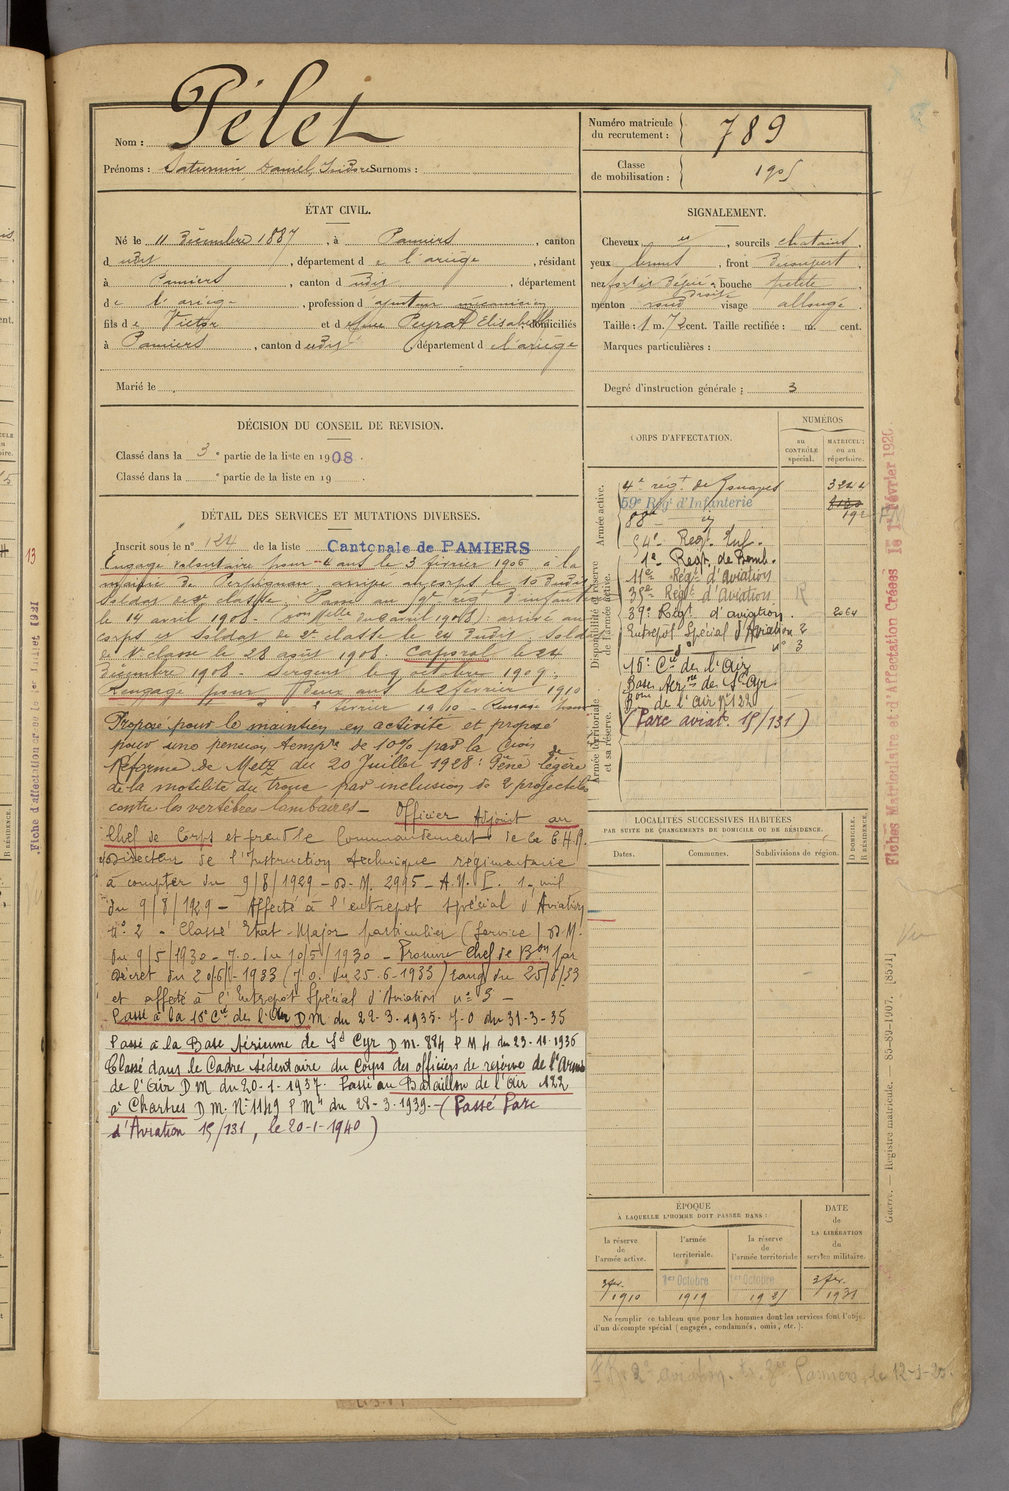 Nom : Pélet
Prénoms : Saturnin Daniel, Isidore Surnoms :
Numéro matricule du recrutement : 789
Classe de mobilisation : 1905
ÉTAT CIVIL.
Né le 11 Décembre 1887, à Pamiers, canton
dudit, département de l'ariège, résidant
à Pamiers, canton dudit, département
de l'ariège, profession d'ajusteur mécanicien
fils de Victor et de Peyrat Elisabeth domiciliés
à Pamiers, canton dudit département de l'ariège
Marié le
SIGNALEMENT.
Cheveux et, sourcils chatains,
yeux, front Découvert,
nez fort bouche petite
droite
menton rond visage allongé
Taille : 1 m. 72 cent. Taille rectifiée : m. cent.
Marques particulières :
Degré d'instruction générale : 3
DÉCISION DU CONSEIL DE REVISION.
Classé dans la 3e partie de la liste en 1908.
Classé dans la e partie de la liste en 19 .
DÉTAIL DES SERVICES ET MUTATIONS DIVERSES.
Inscrit sous le n° 124 de la liste Cantonale de PAMIERS
Engagé volontaire pour 4 ans le 3 février 1906 à la
mairie de Perpignan, arrivé au corps le 10 Dudit
Soldat de 2e classe. Passé au 9e régt d'infanterie
le 14 avril 1908. arrivé au
corps et Soldat de 2e classe le 24 Dudit. Soldat
de 1e classe le 28 août 1908. Caporal le 24
Décembre 1908. Sergent le 9 octobre 1909.
Rengagé pour Deux ans le 2 février 1910
février 1910 - Rengagé
Proposé pour le maintien en activité et proposé
pour une pension tempre de 10% par la Cion de
Réforme de Metz du 20 Juillet 1928 : Gêne légère
de la motilité du tronc par inclusion de 2 projectiles
contre les vertèbres lombaires - Officier Adjoint au
Chef de Corps et prend le Commandement de la C.H.R.
Directeur de l'Instruction technique régimentaire
à compter du 9/8/1929 - D.M. 2995 - A.N.
du 9/8/1929 - Affecté à l'entrepot spécial d'Aviation
n° 2 - Classé Etat-Major particulier (Service) D.M.
du 9/5/1930 - J.O. du 10/5/1930 - Promu Chef de Bon par
Décret du 20/6/1933 (J.O. du 25-6-1933) rang du 25/6/33
et affecté à l'Entrepot Spécial d'Aviation n° 3 -
Passé à la 16e Cie de l'Air D.M. du 22-3-1935. J-O du 31-3-35
Passé à la Base Aérienne de St Cyr D.M. 884 P M 4 du 23-10-1936
Classé dans le Cadre sédentaire du Corps des officiers de réserve de l'Armée
de l'Air D M du 20-1-1937. Passé au Bataillon de l'Air 122
à Chartres D.M. N° 1149 P M4 du 28-3-1939. - (Passé Parc
d'Aviation 15/131, le 20-1-1940)
CORPS D'AFFECTATION.
NUMÉROS
au contrôle spécial.
matricule ou au répertoire.
Armée active.
4e régt de Zouaves 3222
59e Rég d'Infanterie
88e 192
Disponibilité et réserve de l'armée active.
Regt. Inf.
1er Regt. de Bomb.
11e Régt d'aviation
35e Régt d'Aviation R
39e Régt d'aviation. 2064
Entrepot Spécial d'Aviation 2
n° 3
Armée territoriale et sa réserve.
16e Cie de l'Air
Base Aerne de St Cyr
Bon de l'air n° 122
(Parc aviat. 15/131)
LOCALITÉS SUCCESSIVES HABITÉES
PAR SUITE DE CHANGEMENTS DE DOMICILE OU DE RÉSIDENCE.
Dates. Communes. Subdivisions de région. D DOMICILE. R RÉSIDENCE.
ÉPOQUE
À LAQUELLE L'HOMME DOIT PASSER DANS :
la réserve de l'armée active.
l'armée territoriale.
la réserve de l'armée territoriale
DATE de LA LIBÉRATION du service militaire.
3 fév. 1910
1er Octobre 1919
1er Octobre 1925
3 fév. 1931
Ne remplir ce tableau que pour les hommes dont les services font l'objet
d'un décompte spécial (engagés, condamnés, omis, etc.).
Fiches Matriculaire et d'Affectation Créées le 1er Février 1926
Guerre. — Registre matricule. — 85-89-1907. [8591]
aviation. Pamiers, le 12-1-20.
13